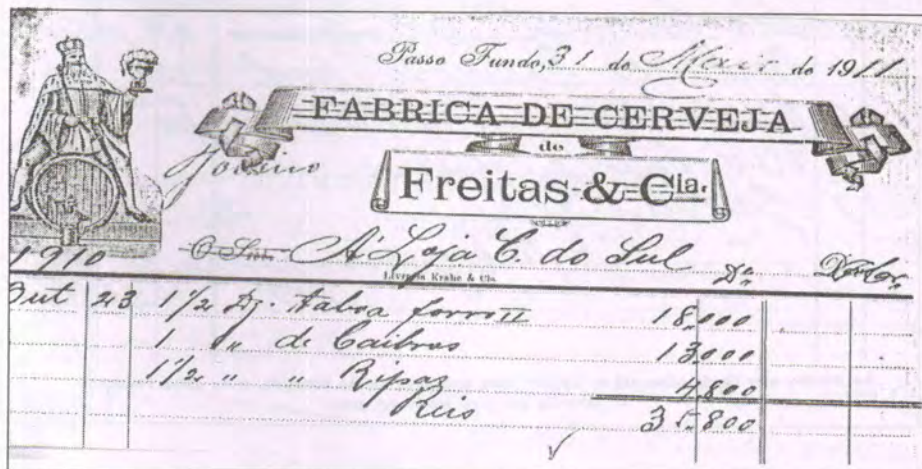 Passo Fundo, 31 de Maio de 1911
FABRICA DE CERVEJA
de
Freitas & Cia.
O Snr. A' Loja C. do Sul Dr.
Livraria Krahe & Cia.
1910
Out 23 1 1/2 Dz. taboa forro II 18.000
1 " de Caibros 13.000
1 1/2 " " Ripas 4.800
Reis 35.800